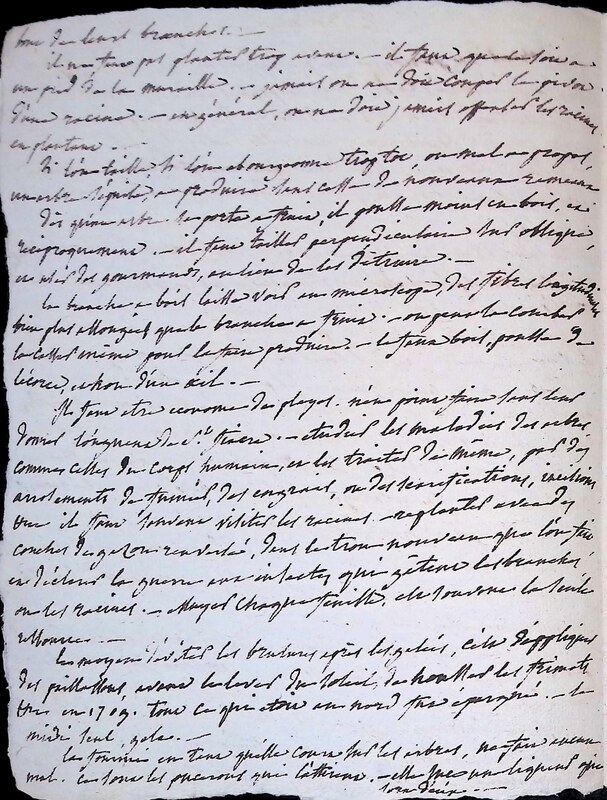 bout de leurs branches. —
il ne faut pas planter trop avant. — il faut que ce soit a
un pied de la muraille. — jamais on ne doit couper le pivot
d'une racine. — en général, on ne doit jamais offenser les racines
en plantant. —
Si l'on taille, si l'on ébourgeonne trop tot, ou mal a propos,
un arbre s'épuise, a produire sans cesse de nouveaux rameaux
Dès qu'un arbre se porte a fruit, il pousse moins en bois, et
reciproquement. — il faut tailler perpendiculaire sur oblique,
et user des gourmands, au lieu de les détruire. —
la branche a bois laisse voir au microscope, des fibres longitudinales
bien plus allongées que la branche a fruit. — on peut la courber
la casser même pour la faire produire. — le faux bois, pousse de
l'écorce, et non d'un œil. —
Il faut etre econome de playes. n'en point faire sans leur
donner l'onguent de St. fiacre. — etudier les maladies des arbres
comme celles du corps humain, et les traiter de même, par des
arrosements de fumier, des engrais, ou des scarifications, incisions
&c. il faut souvent visiter les racines. — replanter avec des
couches de gazon renversé, dans le trou nouveau que l'on fait
et déclarer la guerre aux insectes qui gâtent les branches
ou les racines. — chaque feuille, est souvent la seule
ressource. —
le moyen d'éviter les brulures après les gelées, c'est d'appliquer
des paillassons, avant le lever du soleil, de les frimats
&c. en 1709. tout ce qui etoit au nord fut épargné. — le
midi seul, gela. —
les fourmis en tant qu'elle court sur les arbres, ne fait aucun
mal. ce sont les pucerons qui l'attirent. — elle une liqueur qui